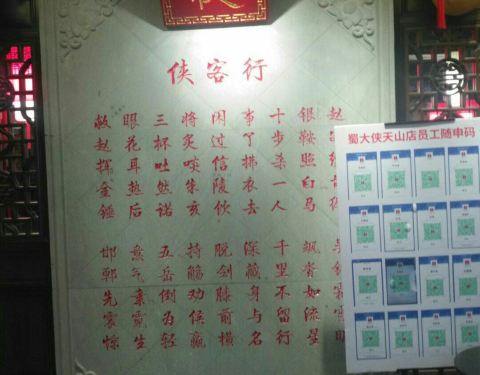 侠客行
赵
银鞍照白马 飒沓如流星
十步杀一人 千里不留行
事了拂衣去 深藏身与名
闲过信陵饮 脱剑膝前横
将炙啖朱亥 持觞劝侯嬴
三杯吐然诺 五岳倒为轻
眼花耳热后 意气素霓生
救赵挥金锤 邯郸先震惊
蜀大侠天山店员工随申码